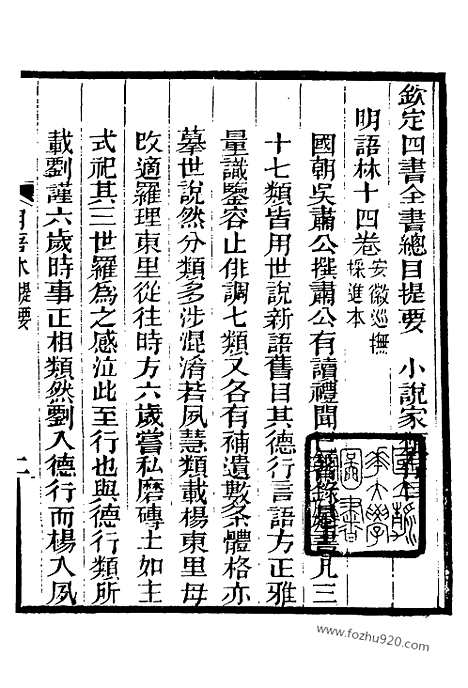 欽定四書全書總目提要　小說家
明語林十四卷　安徽巡撫
採進本
國朝吳肅公撰肅公有讀禮問已著錄是書凡三
十七類皆用世說新語舊目其德行言語方正雅
量識鑒容止俳調七類又各有補遺數条體格亦
摹世說然分類多涉混淆若夙慧類載楊東里母
改適羅理東里從往時方六歲嘗私磨磚土如主
式祀其三世羅為之感泣此至行也與德行類所
載劉謹六歲時事正相類然劉入德行而楊入夙
明語林提要　二
www.fozhu920.com